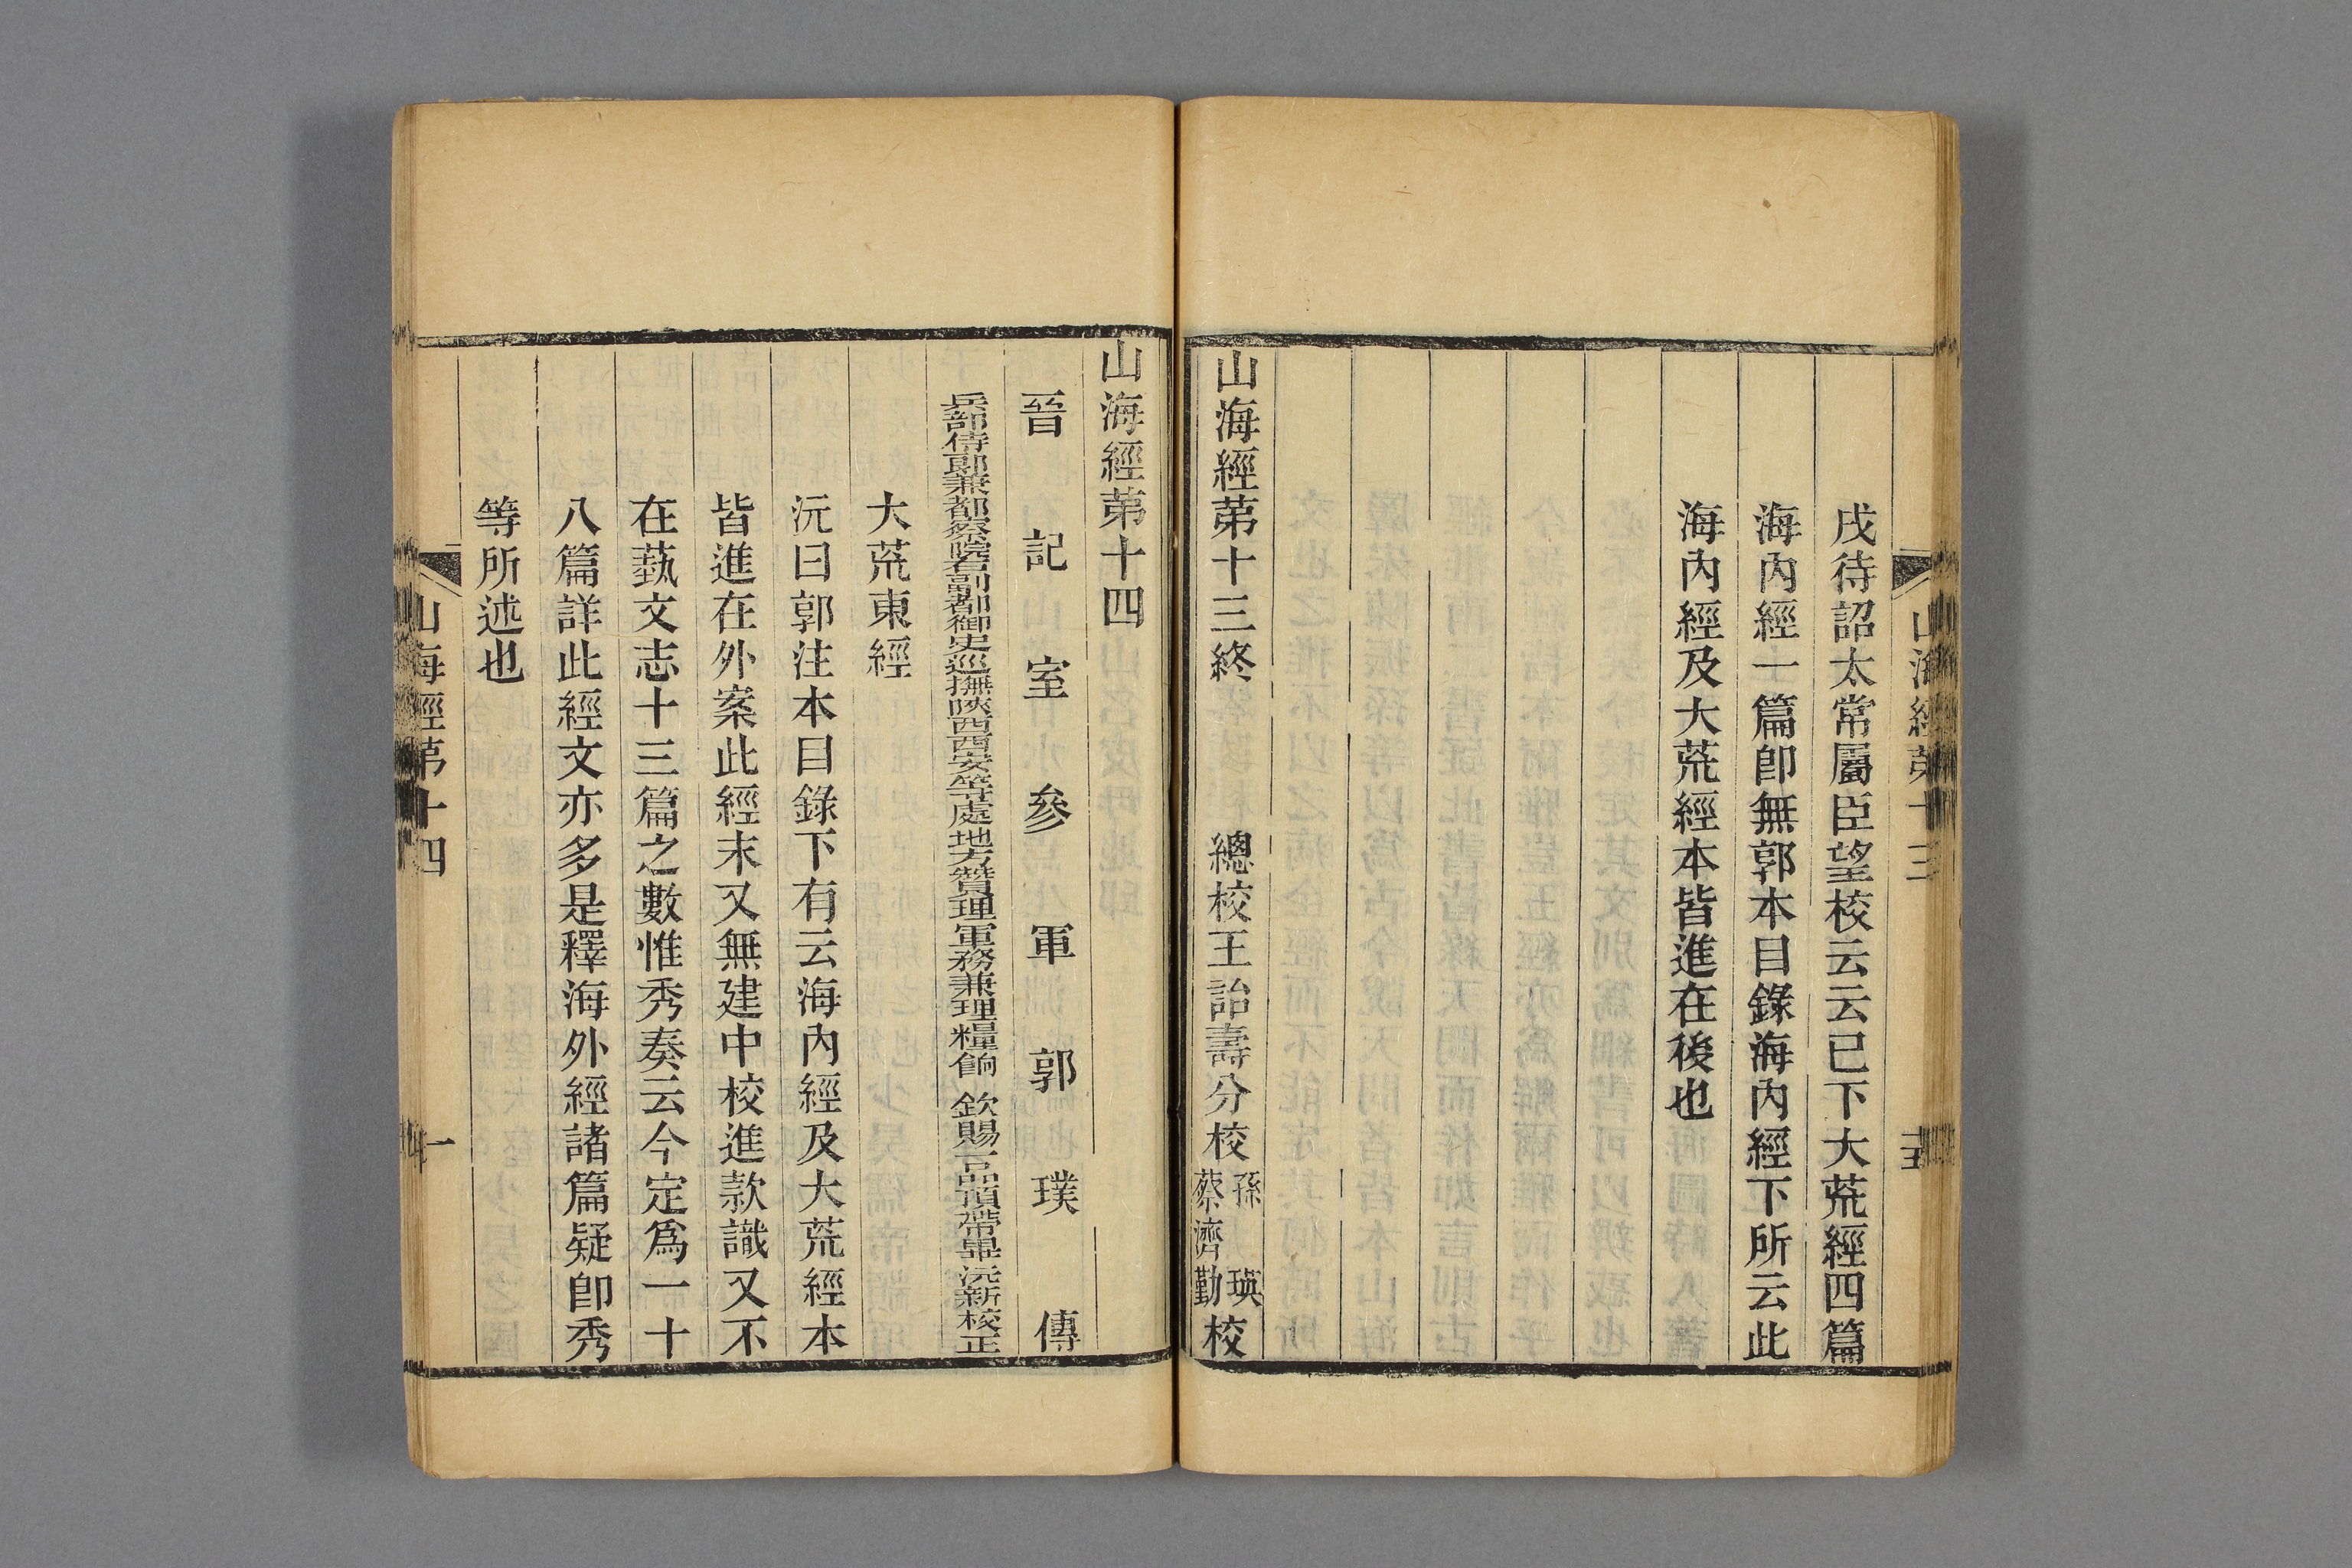 山海經第十三
戌待詔太常屬臣望校云云已下大荒經四篇
海內經一篇卽無郭本目錄海內經下所云此
海內經及大荒經本皆進在後也
山海經第十三終 總校王詒壽分校孫瑛蔡濟勤校
山海經第十四
晉記室參軍郭璞傳
兵部侍郎兼都察院右副都御史巡撫陝西西安等處地方贊理軍務兼理糧餉 欽賜一品頂帶畢沅新校正
大荒東經
沅曰郭注本目錄下有云海內經及大荒經本
皆進在外案此經末又無建中校進款識又不
在藝文志十三篇之數惟秀奏云今定爲一十
八篇詳此經文亦多是釋海外經諸篇疑卽秀
等所述也
山海經第十四
一